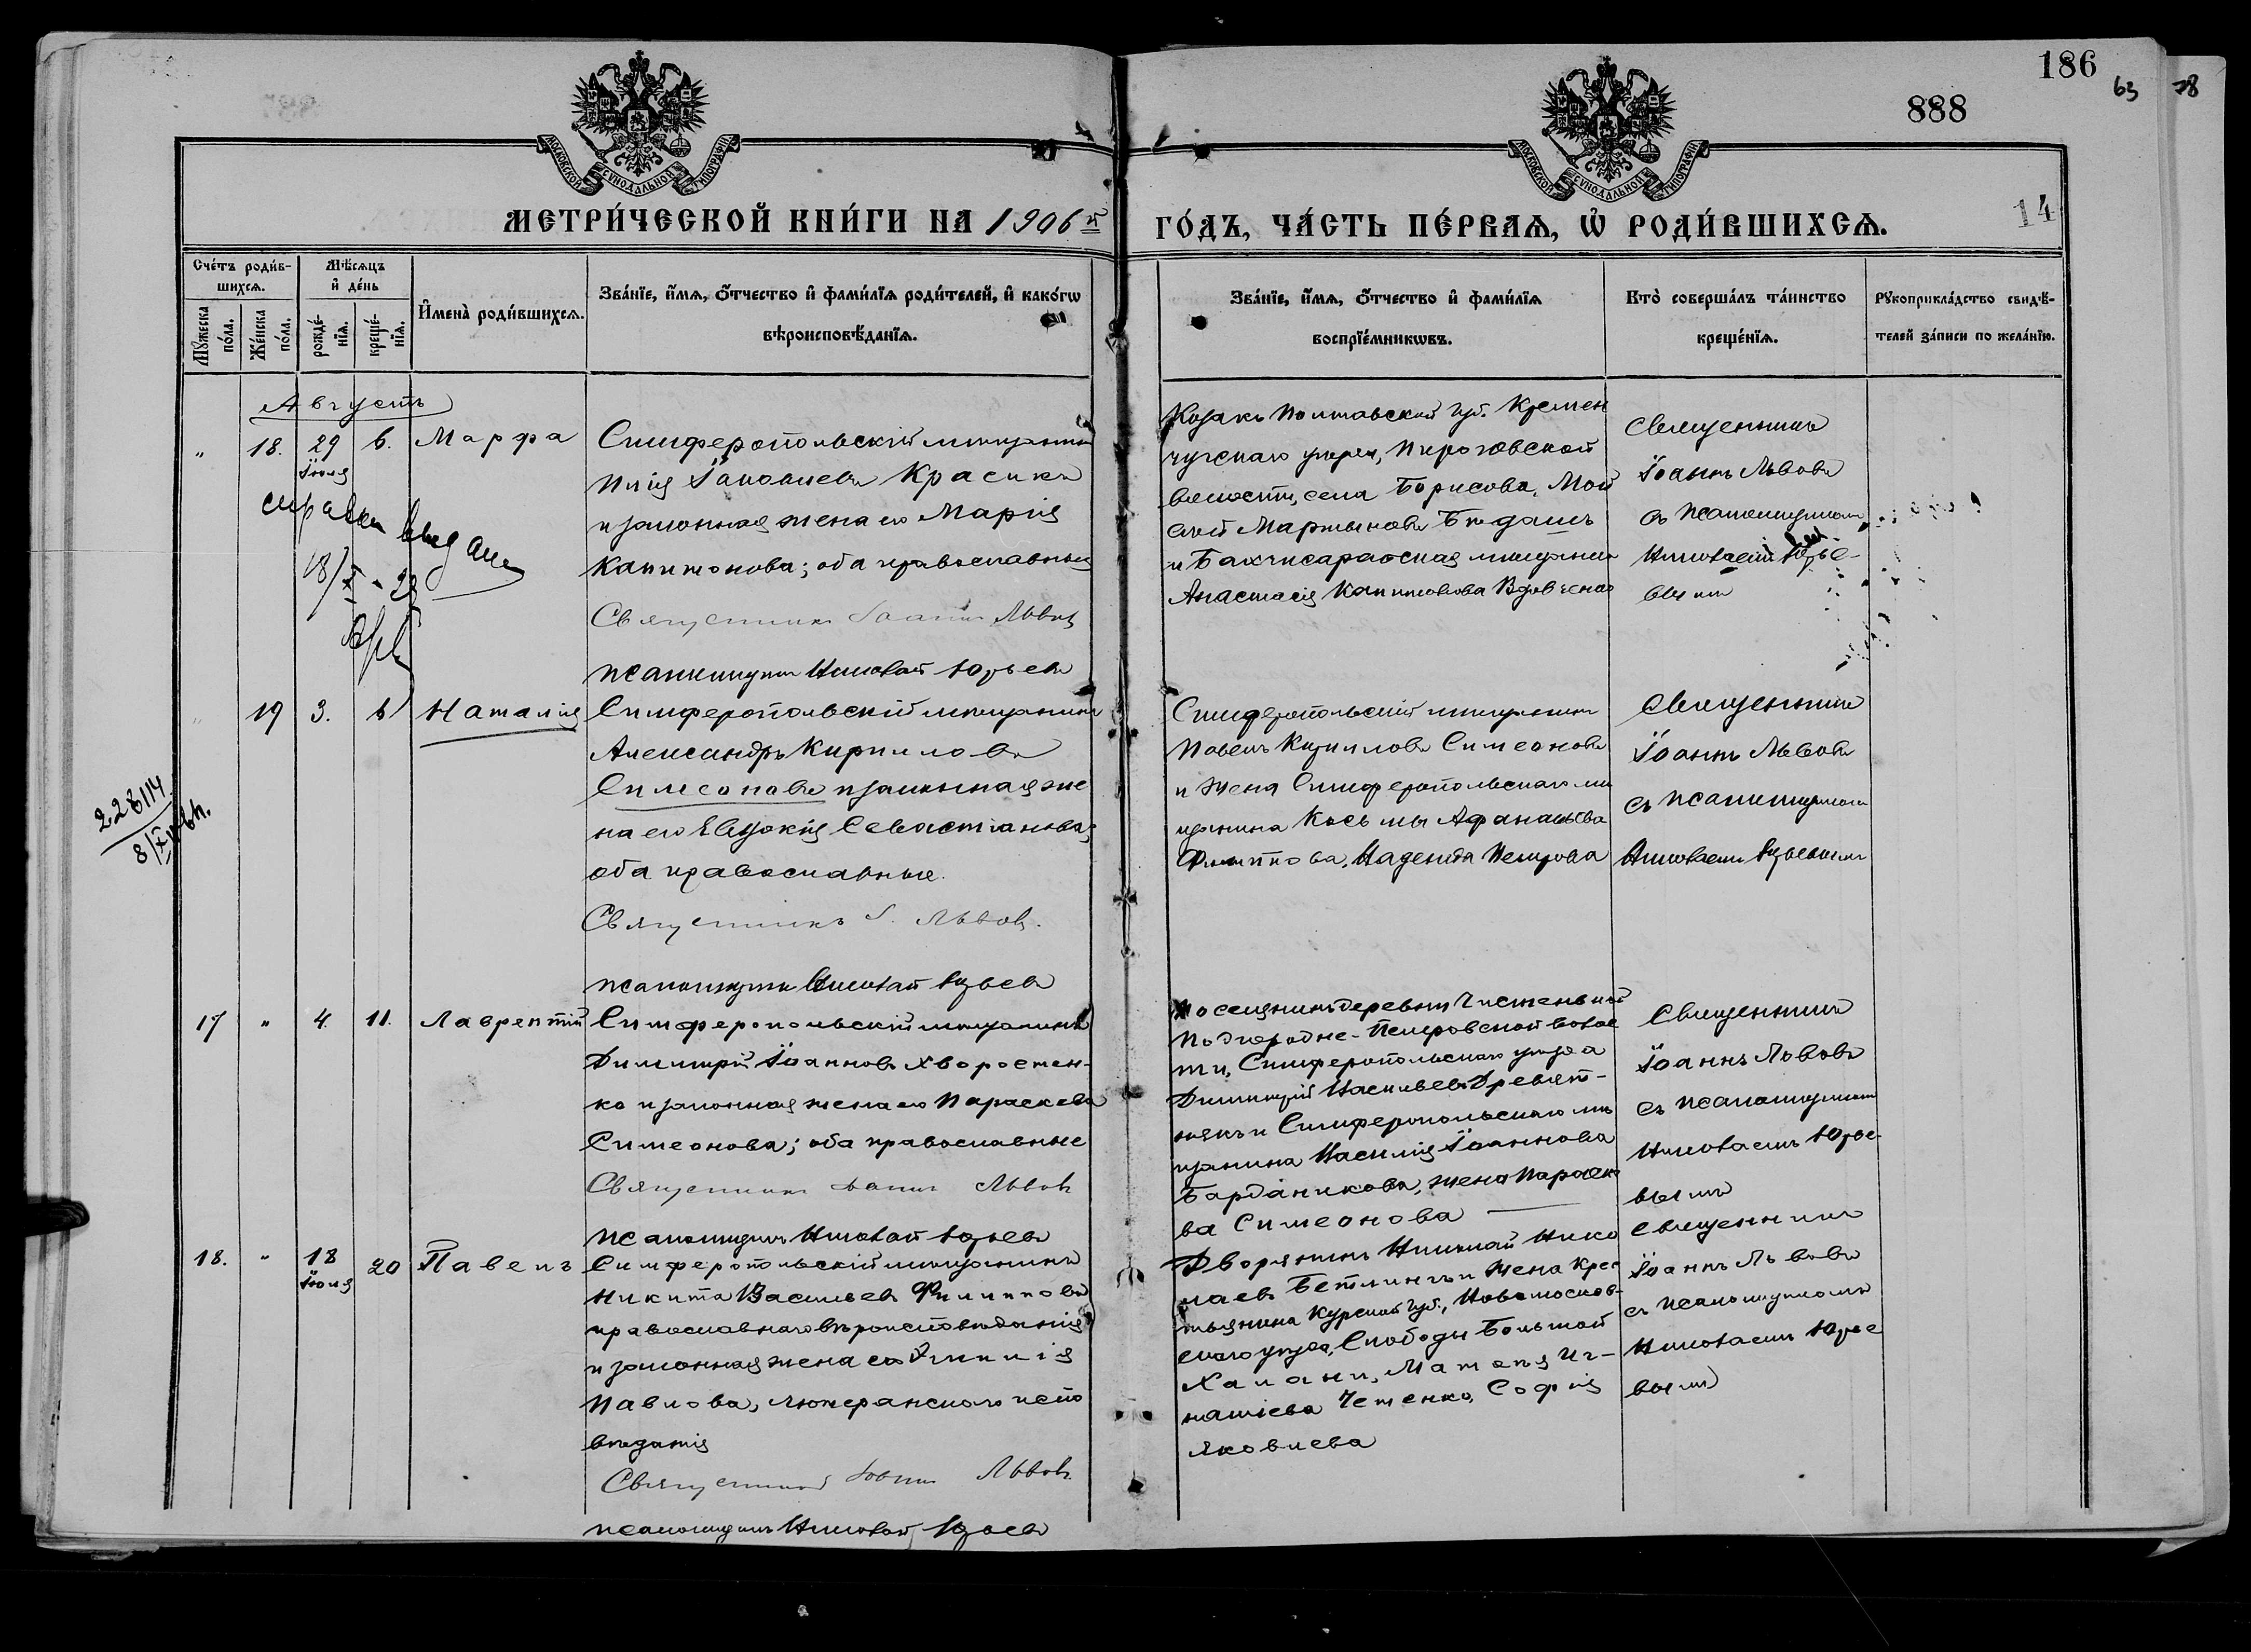 186
63
78
888
14
МОСКОВСКОЙ СѴНОДАЛЬНОЙ ТИПОГРАФІИ
МОСКОВСКОЙ СѴНОДАЛЬНОЙ ТИПОГРАФІИ
МЕТРИ́ЧЕСКОЙ КНИ́ГИ НА 1906 й
ГО́ДЪ, ЧА́СТЬ ПЕ́РВАѦ, Ѡ РОДИ́ВШИХСѦ.
Сче́тъ роди́вшихсѧ.
Мꙋ́жеска по́ла.
Же́нска по́ла.
Мѣ́сѧцъ и҆ де́нь
рожде́нїѧ.
креще́нїѧ.
И҆мена̀ роди́вшихсѧ.
Зва́нїе, и҆́мѧ, ѻ҆́тчество и҆ фами́лїѧ роди́телей, и҆ како́гѡ
вѣроисповѣ́данїѧ.
Зва́нїе, и҆́мѧ, ѻ҆́тчество и҆ фами́лїѧ
воспрїе́мникѡвъ.
Кто̀ соверша́лъ та́инство
креще́нїѧ.
Рꙋкоприкла́дство свидѣ́телей за́писи по жела́нїю.
Августъ
" 18. 29 Іюля 6. Марфа
Симферопольскій мѣщанинъ
Илія Іаковлевъ Красикъ
и законная жена его Марія
Капитонова; оба православные
Священникъ Іоаннъ Львовъ
псаломщикъ Николай Юрьевъ
справка выдана
18/X - 29
Козакъ Полтавской губ. Кремен
чугскаго уѣзда, Пироговской
волости, села Борисова, Мои
сей Мартыновъ Бѣдашъ
и Бахчисарайская мѣщанка
Анастасія Капитонова Вдов
Священникъ
Іоаннъ Львовъ
съ псаломщикомъ
Николаемъ Юрье-
вымъ
" 19 3. 6 Наталія
Симферопольскій мѣщанинъ
Александръ Кирилловъ
Симеоновъ и законная же
на его Евдокія Севастіанова;
оба православные.
Священникъ І. Львовъ.
псаломщикъ Николай Юрьевъ
228114
8/X
Симферопольскій мѣщанинъ
Павелъ Кирилловъ Симеоновъ
и жена Симферопольскаго мѣ
щанина Косьмы Афанасьева
Филиппова, Надежда Петрова
Священникъ
Іоаннъ Львовъ
съ псаломщикомъ
Николаемъ Юрьевымъ
17 " 4. 11. Лаврентій
Симферопольскій мѣщанинъ
Димитрій Іоанновъ Хворостен-
ко и законная жена его Параскева
Симеонова; оба православные
Священникъ Іоаннъ Львовъ
псаломщикъ Николай Юрьевъ
Поселянинъ деревни Чистенькой
Подгородне-Петровской волос
ти, Симферопольскаго уѣзда
Димитрій Васильевъ Древят-
някъ и Симферопольскаго мѣ
щанина Василія Іоаннова
Барданикова, жена Параске
ва Симеонова
Священникъ
Іоаннъ Львовъ
съ псаломщикомъ
Николаемъ Юрье-
вымъ
18. " 18 Іюля 20 Павелъ
Симферопольскій мѣщанинъ
Никита Васильевъ Филипповъ
православнаго вѣроисповѣданія
и законная жена его Эмилія
Павлова, лютеранскаго испо
вѣданія
Священникъ Іоаннъ Львовъ
псаломщикъ Николай Юрьевъ
Дворянинъ Николай Нико
лаевъ Бетлингъ и жена крес
тьянина Курской губ., Новооскол-
скаго уѣзда, Слободы Большой
Халани, Матвея Иг-
натіева Четенко, Софія
Яковлева
Священникъ
Іоаннъ Львовъ
съ псаломщикомъ
Николаемъ Юрье
вымъ